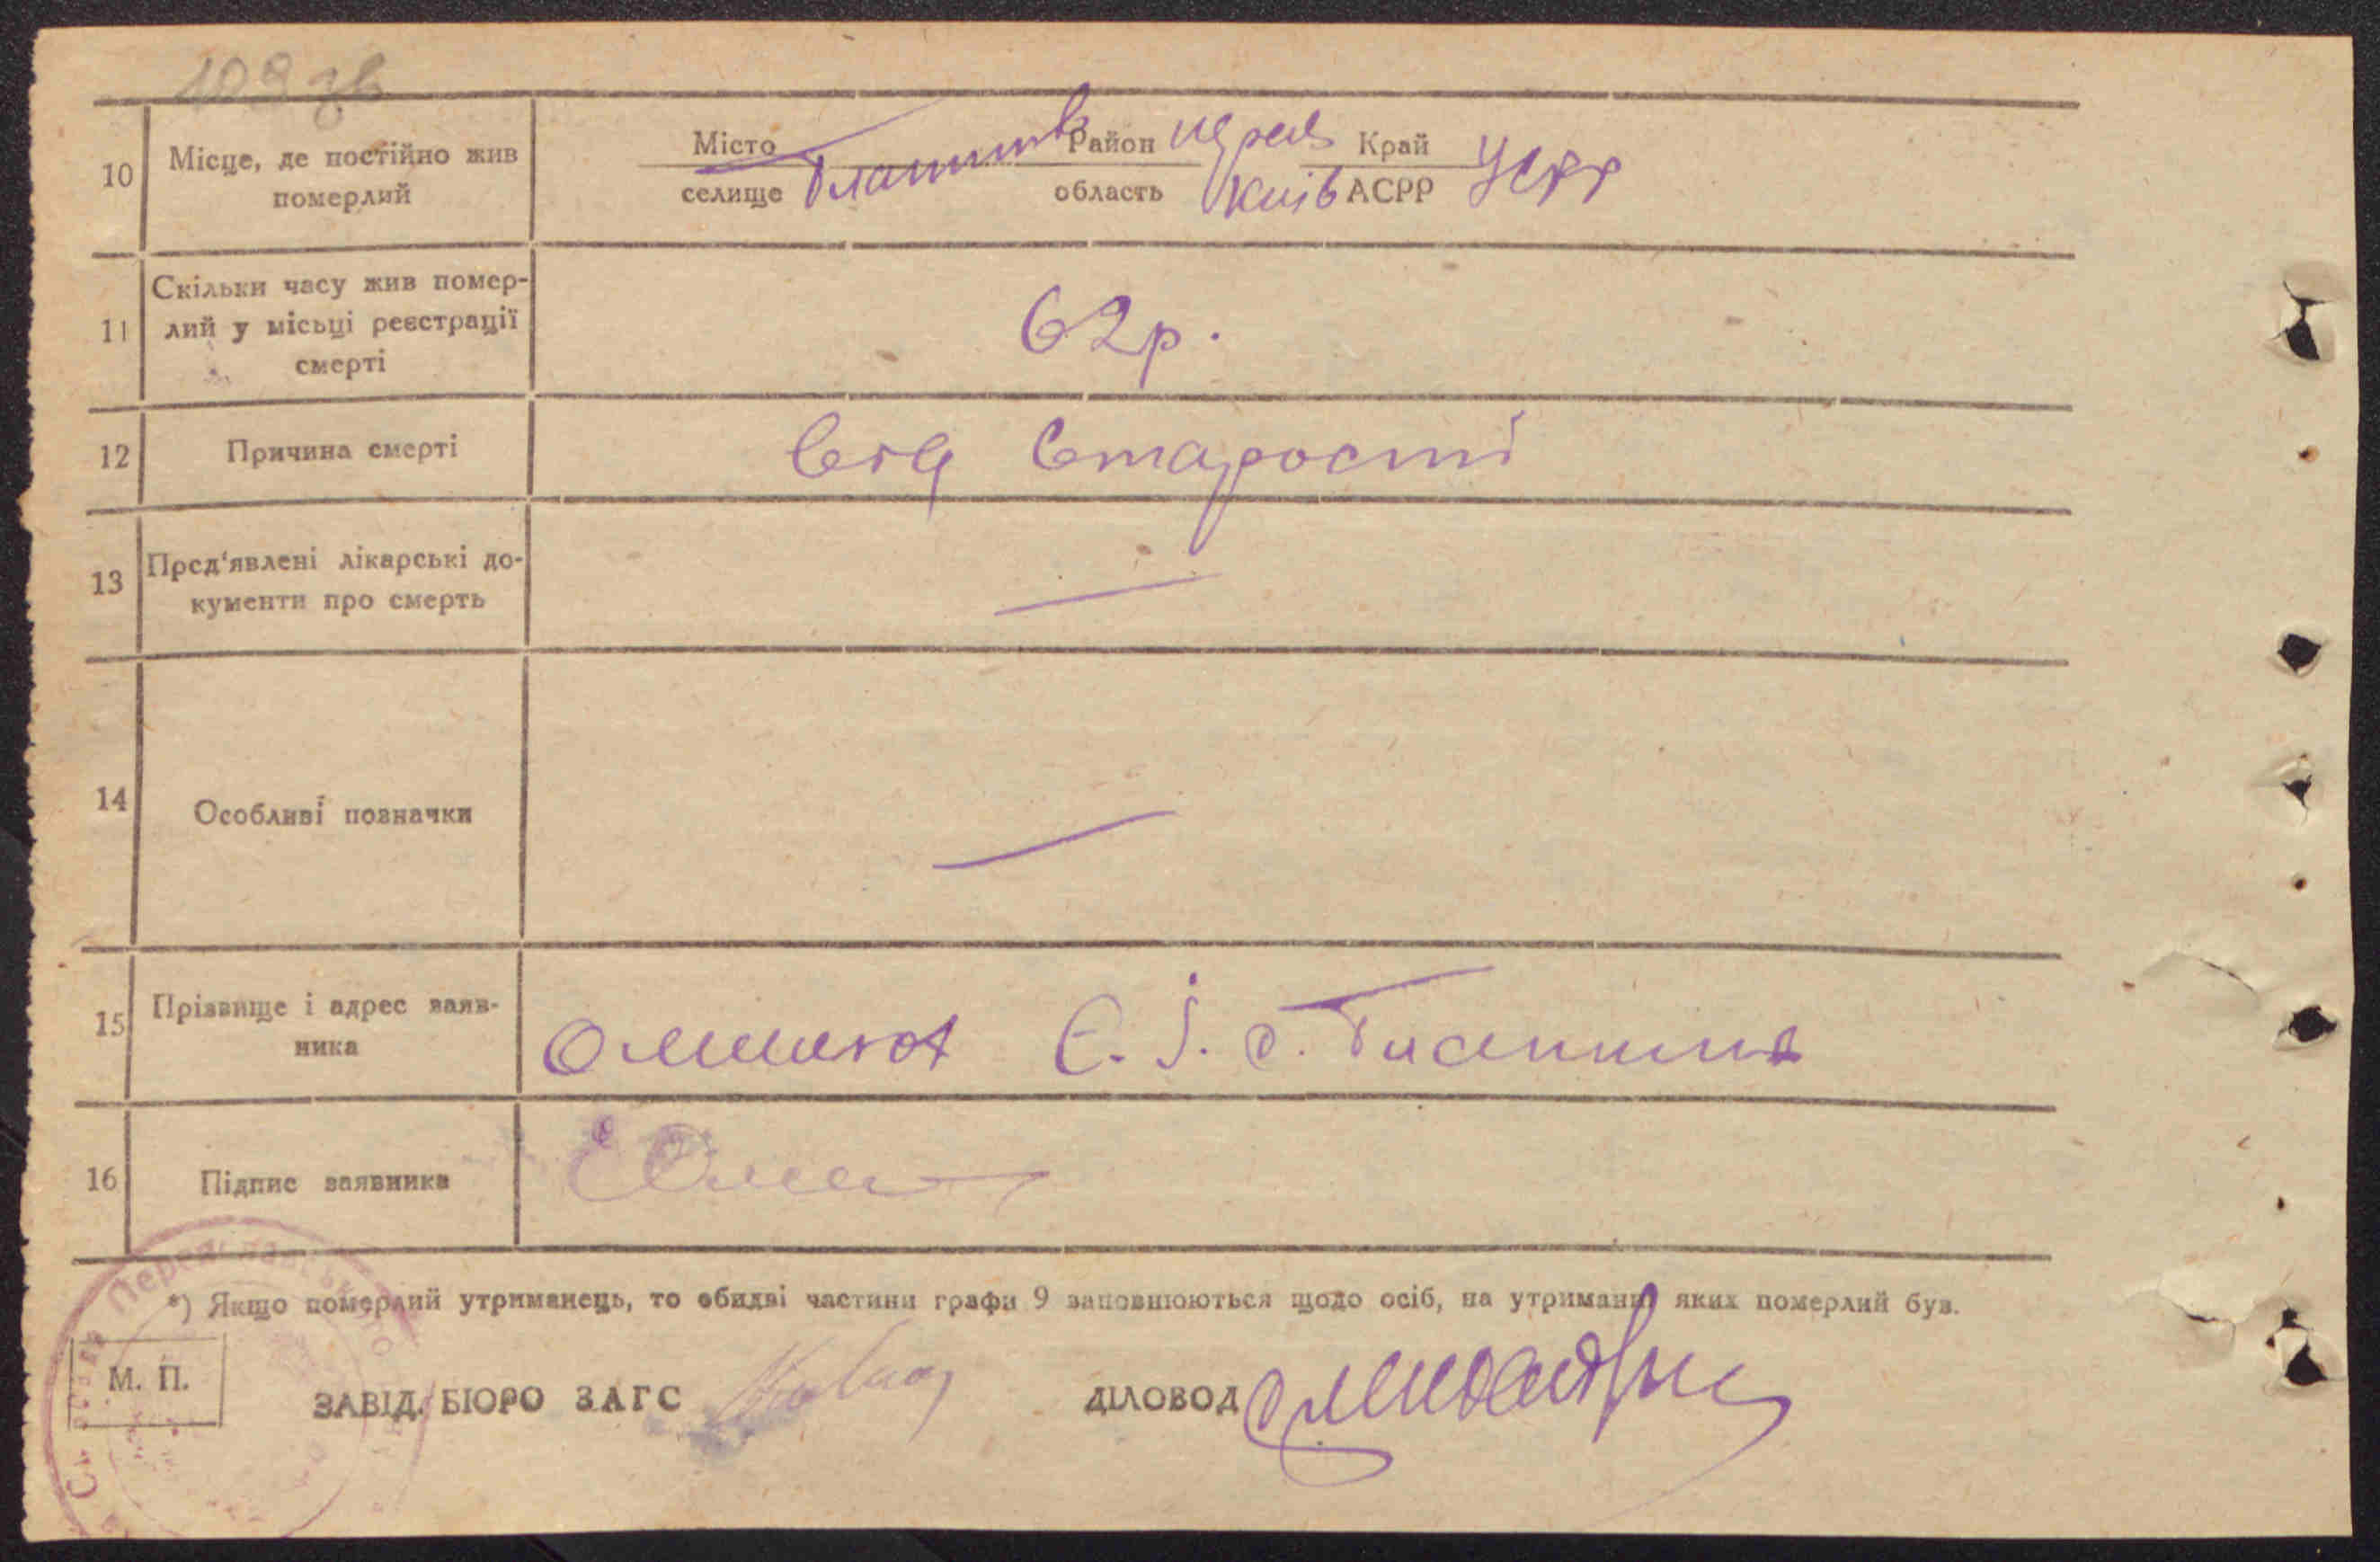 109 зв
10 Місце, де постійно жив померлий
Місто Район Край
селище область Київ АСРР УСРР
11 Скільки часу жив помер-
лий у місьці реєстрації
смерті
62р.
12 Причина смерті
від старості
13 Пред'явлені лікарські до-
кументи про смерть
—
14 Особливі позначки
—
15 Прізвище і адрес заяв-
ника
Є. І. с.
16 Підпис заявника
*) Якщо померлий утриманець, то обидві частини графи 9 заповнюються щодо осіб, на утриманні яких померлий був.
М. П.
ЗАВІД. БЮРО ЗАГС ДІЛОВОД